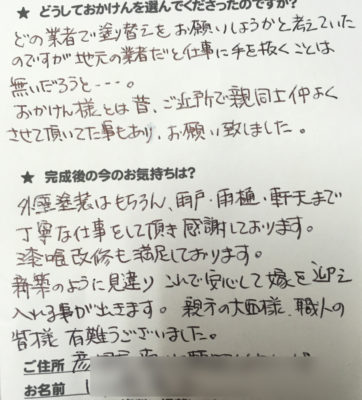 ★ どうしておかけんを選んでくださったのですか?
どの業者で塗り替えをお願いしようかと考えていた
のですが地元の業者だと仕事に手を抜くことは
無いだろうと---。
おかけん様とは昔、ご近所で親同士仲よく
させて頂いてた事もあり、お願い致しました。
★ 完成後の今のお気持ちは?
外壁塗装はもちろん、雨戸・雨樋・軒天まで
丁寧な仕事をして頂き感謝しております。
漆喰改修も満足しております。
新築のように見違り これで安心して嫁を迎え
入れる事が出きます。親方の大西様、職人の
皆様 有難うございました。
ご住所
お名前